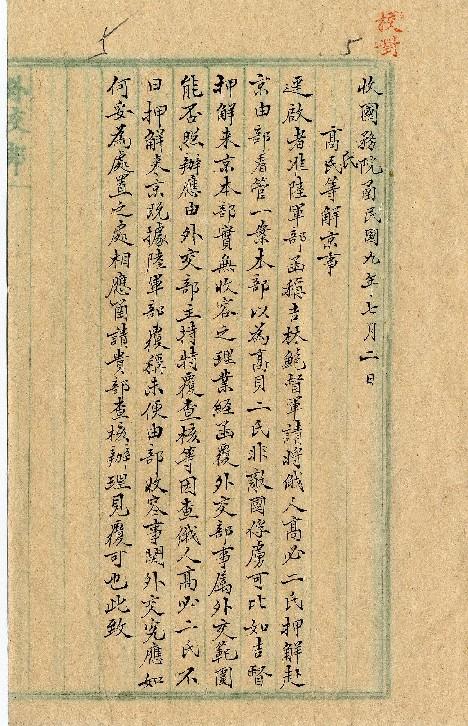 校對
5
收國務院函民國九年七月二日
高氏民等解京事
逕啟者准陸軍部函稱吉林鮑督軍請將俄人高必二氏押解赴
京由部看管一案本部以為高貝二氏非敵國俘虜可比如吉督
押解來京本部實無收容之理業經函覆外交部事屬外交範圍
能否照辦應由外交部主持特覆查核等因查俄人高必二氏不
日押解來京既據陸軍部覆稱未便由部收容事關外交究應如
何妥為處置之處相應函請貴部查核辦理見覆可也此致
外交部